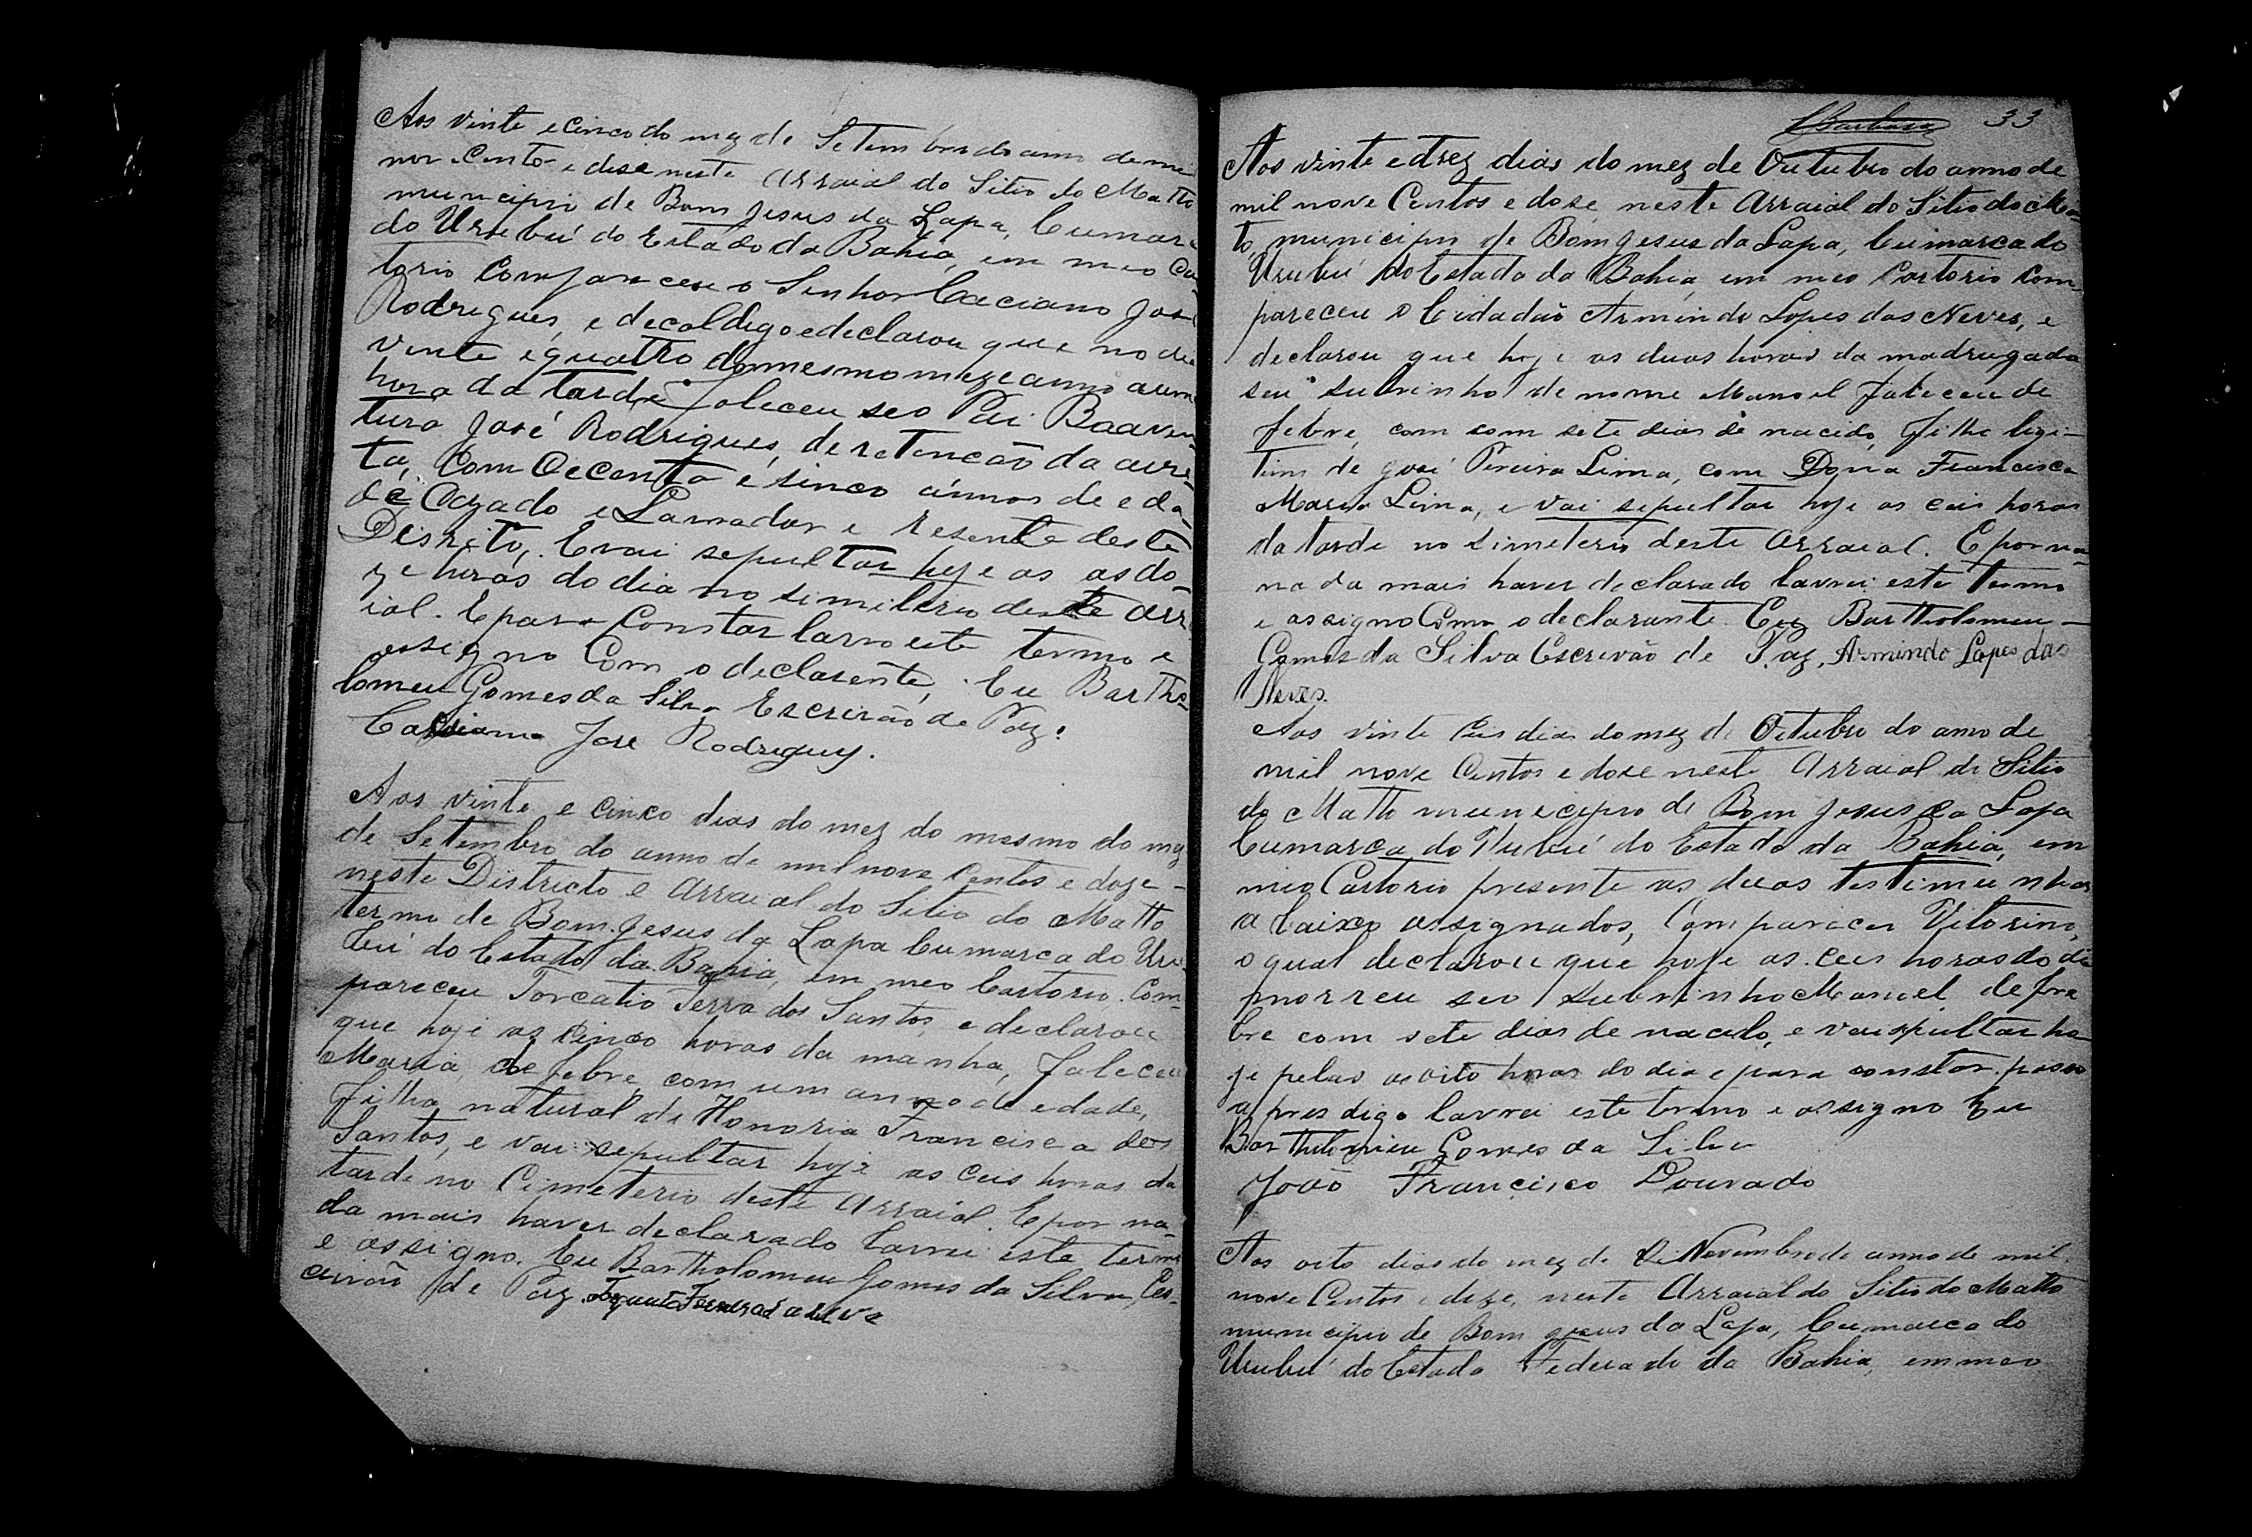 Aos vinte e cinco do mez de Setembro do anno de mil
nove cento e dose neste Arraial do Sitio do Matto
municipio de Bom Jesus da Lapa, Cumarca
do Urubú do Estado da Bahia, em meo Car
torio Compareceu o Senhor Caciano José
Rodrigues, e decol digo e declarou que no dia
vinte e quatro do mesmo mez e anno a uma
hora da tarde faleceu seo Pai Boaven
tura José Rodrigues, de retencão da
ta, Com e sinco annos de eda
de Cazado e Lavrador e resente deste
Distrito, E vai sepultar hoje as as do
ze horas do dia no simiterio deste arra
ial. E para Constar lavro este termo e
assigno Com o declarente, Eu Bartho
lomeu Gomes da Silva Escrivão de Paz.
Cassiano José Rodrigues.
Aos vinte e cinco dias do mez do mesmo do mez
de Setembro do anno de mil nove Centos e doze -
neste Districto e Arraial do Sitio do Matto
termo de Bom Jesus da Lapa Cumarca do Uru
buí do Estado da Bahia, em meo Cartorio. Com-
pareceu Torcatio Ferra dos Santos, e declarou
que hoje as Cinco horas da manha, faleceu
Maria, de febre, com um anno de edade,
filha natural de Honoria Francisca dos
Santos, e vai sepultar hoje as Ceis horas da
tarde no Cimeterio deste Arraial. E por na-
da mais haver declarado lavrei este termo
e assigno. Eu Bartholomeu Gomes da Silva, Es-
crivão de Paz.
Barbosa 33
Aos vinte e trez dias do mez de Outubro do anno de
mil nove Centos e dose, neste Arraial do Sitio do Ma-
to, municipio de Bom Jesus da Lapa, Cumarca do
Urubuí do Estado da Bahia, em meo Cartorio Com-
pareceu o Cidadão Armindo Lopes das Neves, e
declarou que hoje as duas horas da madrugada
seu subrinho de nome Manoel faleceu de
febre, com com sete dias de nacido, filho ligi-
timo de José Pereira Lima, com Dona Francisca
Maria Lima, e vai sepultar hoje as ceis horas
da tarde no simeterio deste Arraial. E por na-
na da mais haver declarado lavrei este termo
e assigno Como o declarante. Eu Bartholomeu -
Gomes da Silva Escrivão de Paz. Armindo Lopes das
Neves.
Aos vinte Ceis dias do mez de Octubro do anno de
mil nove Centos e dose neste Arraial do Sitio
do Matto municipio de Bom Jesus da Lapa
Cumarca do Urubuí do Estado da Bahia, em
meo Cartorio presente as duas testimunhas
a baixo assignados, Compareceu Vitorino,
o qual declarou que hoje as Ceis horas do dia
morreu seo subrinho Manoel de fre
bre com sete dias de nacido, e vai spultar ho-
je pelas as oito horas do dia e para constar passo
a pres digo lavrei este termo e assigno Eu
Bartholomeu Gomes da Silva
João Francisco Dourado
Aos oito dias do mez de de Novembro do anno de mil
nove Centos e doze, neste Arraial do Sitio do Matto
municipio de Bom Jesus da Lapa, Cumarca do
Urubuí do Estado Federado da Bahia, em meo